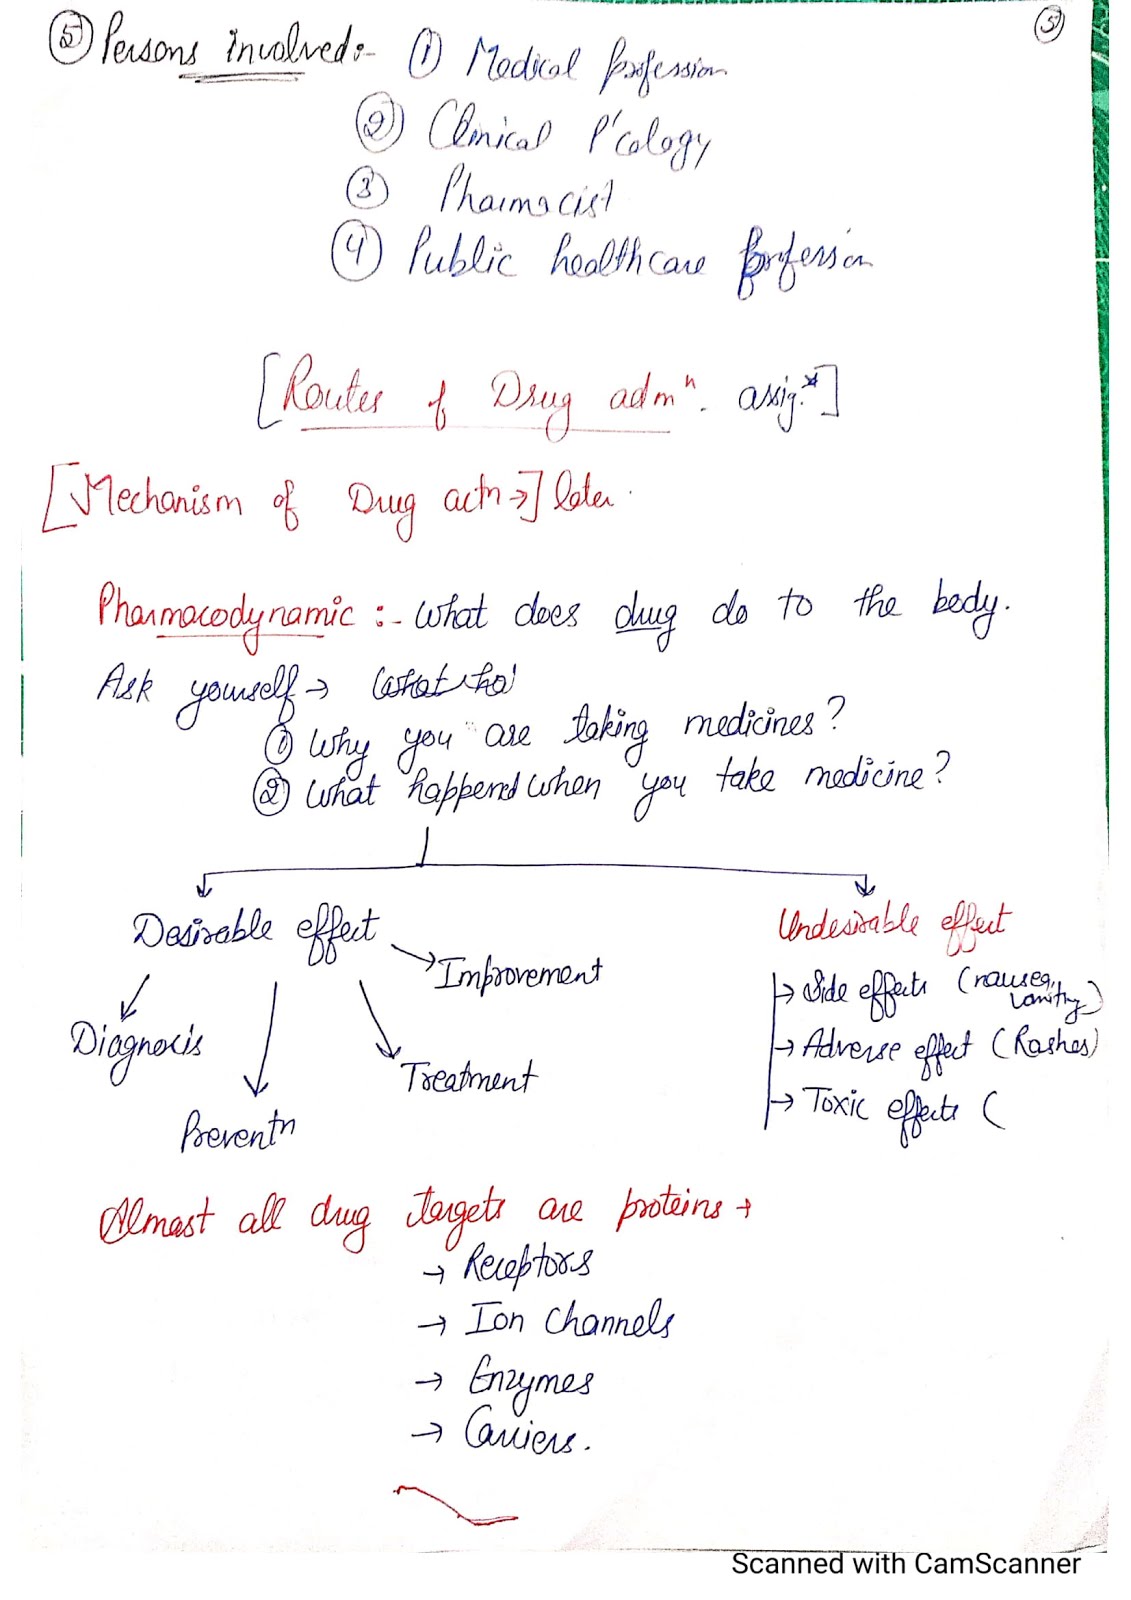 5
⑤ Persons involved:- ① Medical profession
② Clinical P'cology
③ Pharmacist
④ Public healthcare profession
[Routes of Drug admⁿ. assig.*]
[Mechanism of Drug actn →] later.
Pharmacodynamic :- What does drug do to the body.
Ask yourself →
① Why you are taking medicines?
② What happend when you take medicine?
Desirable effect
Undesirable effect
→ Improvement
→ Side effects (nausea,
Diagnosis
→ Adverse effect (Rashes)
Treatment
→ Toxic effects (
Preventn
Almost all drug targets are proteins →
→ Receptors
→ Ion Channels
→ Enzymes
→ Carriers.
Scanned with CamScanner